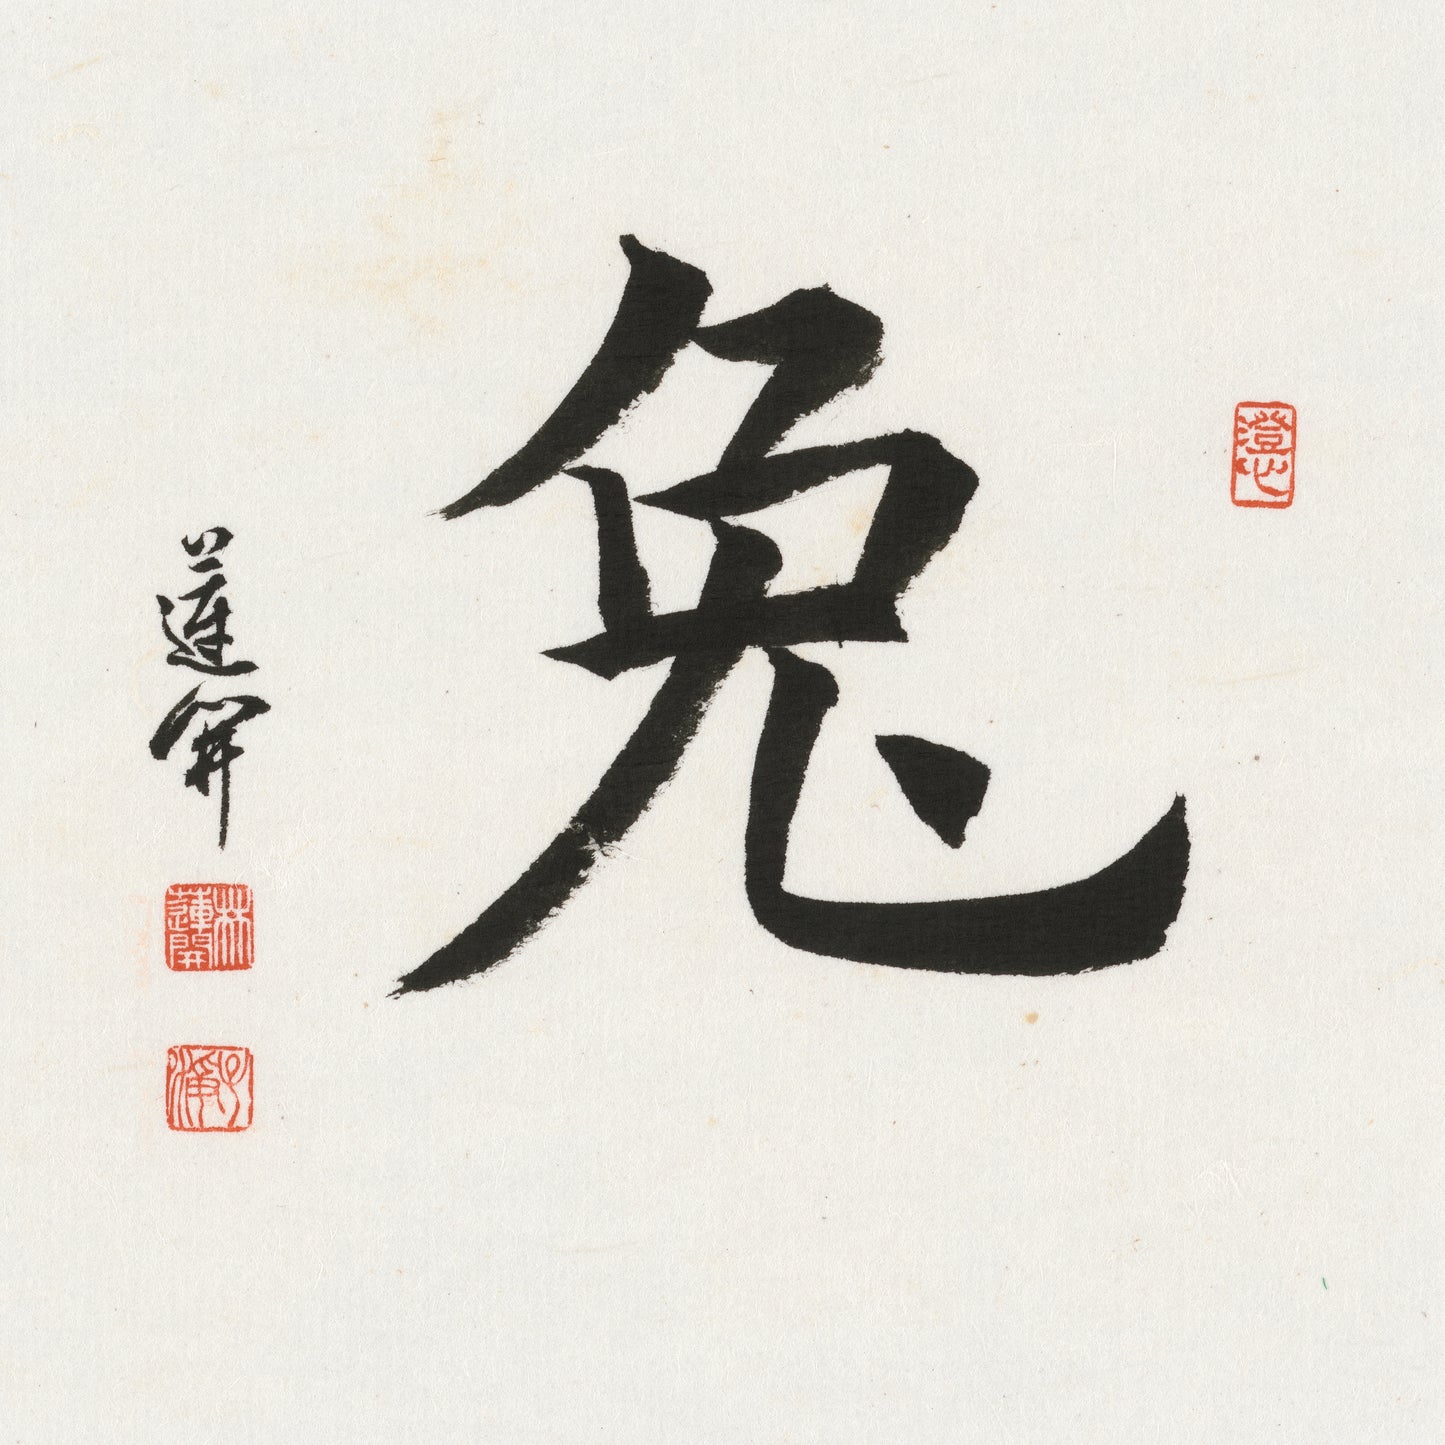 澄心
兔
蓮開
林蓮開